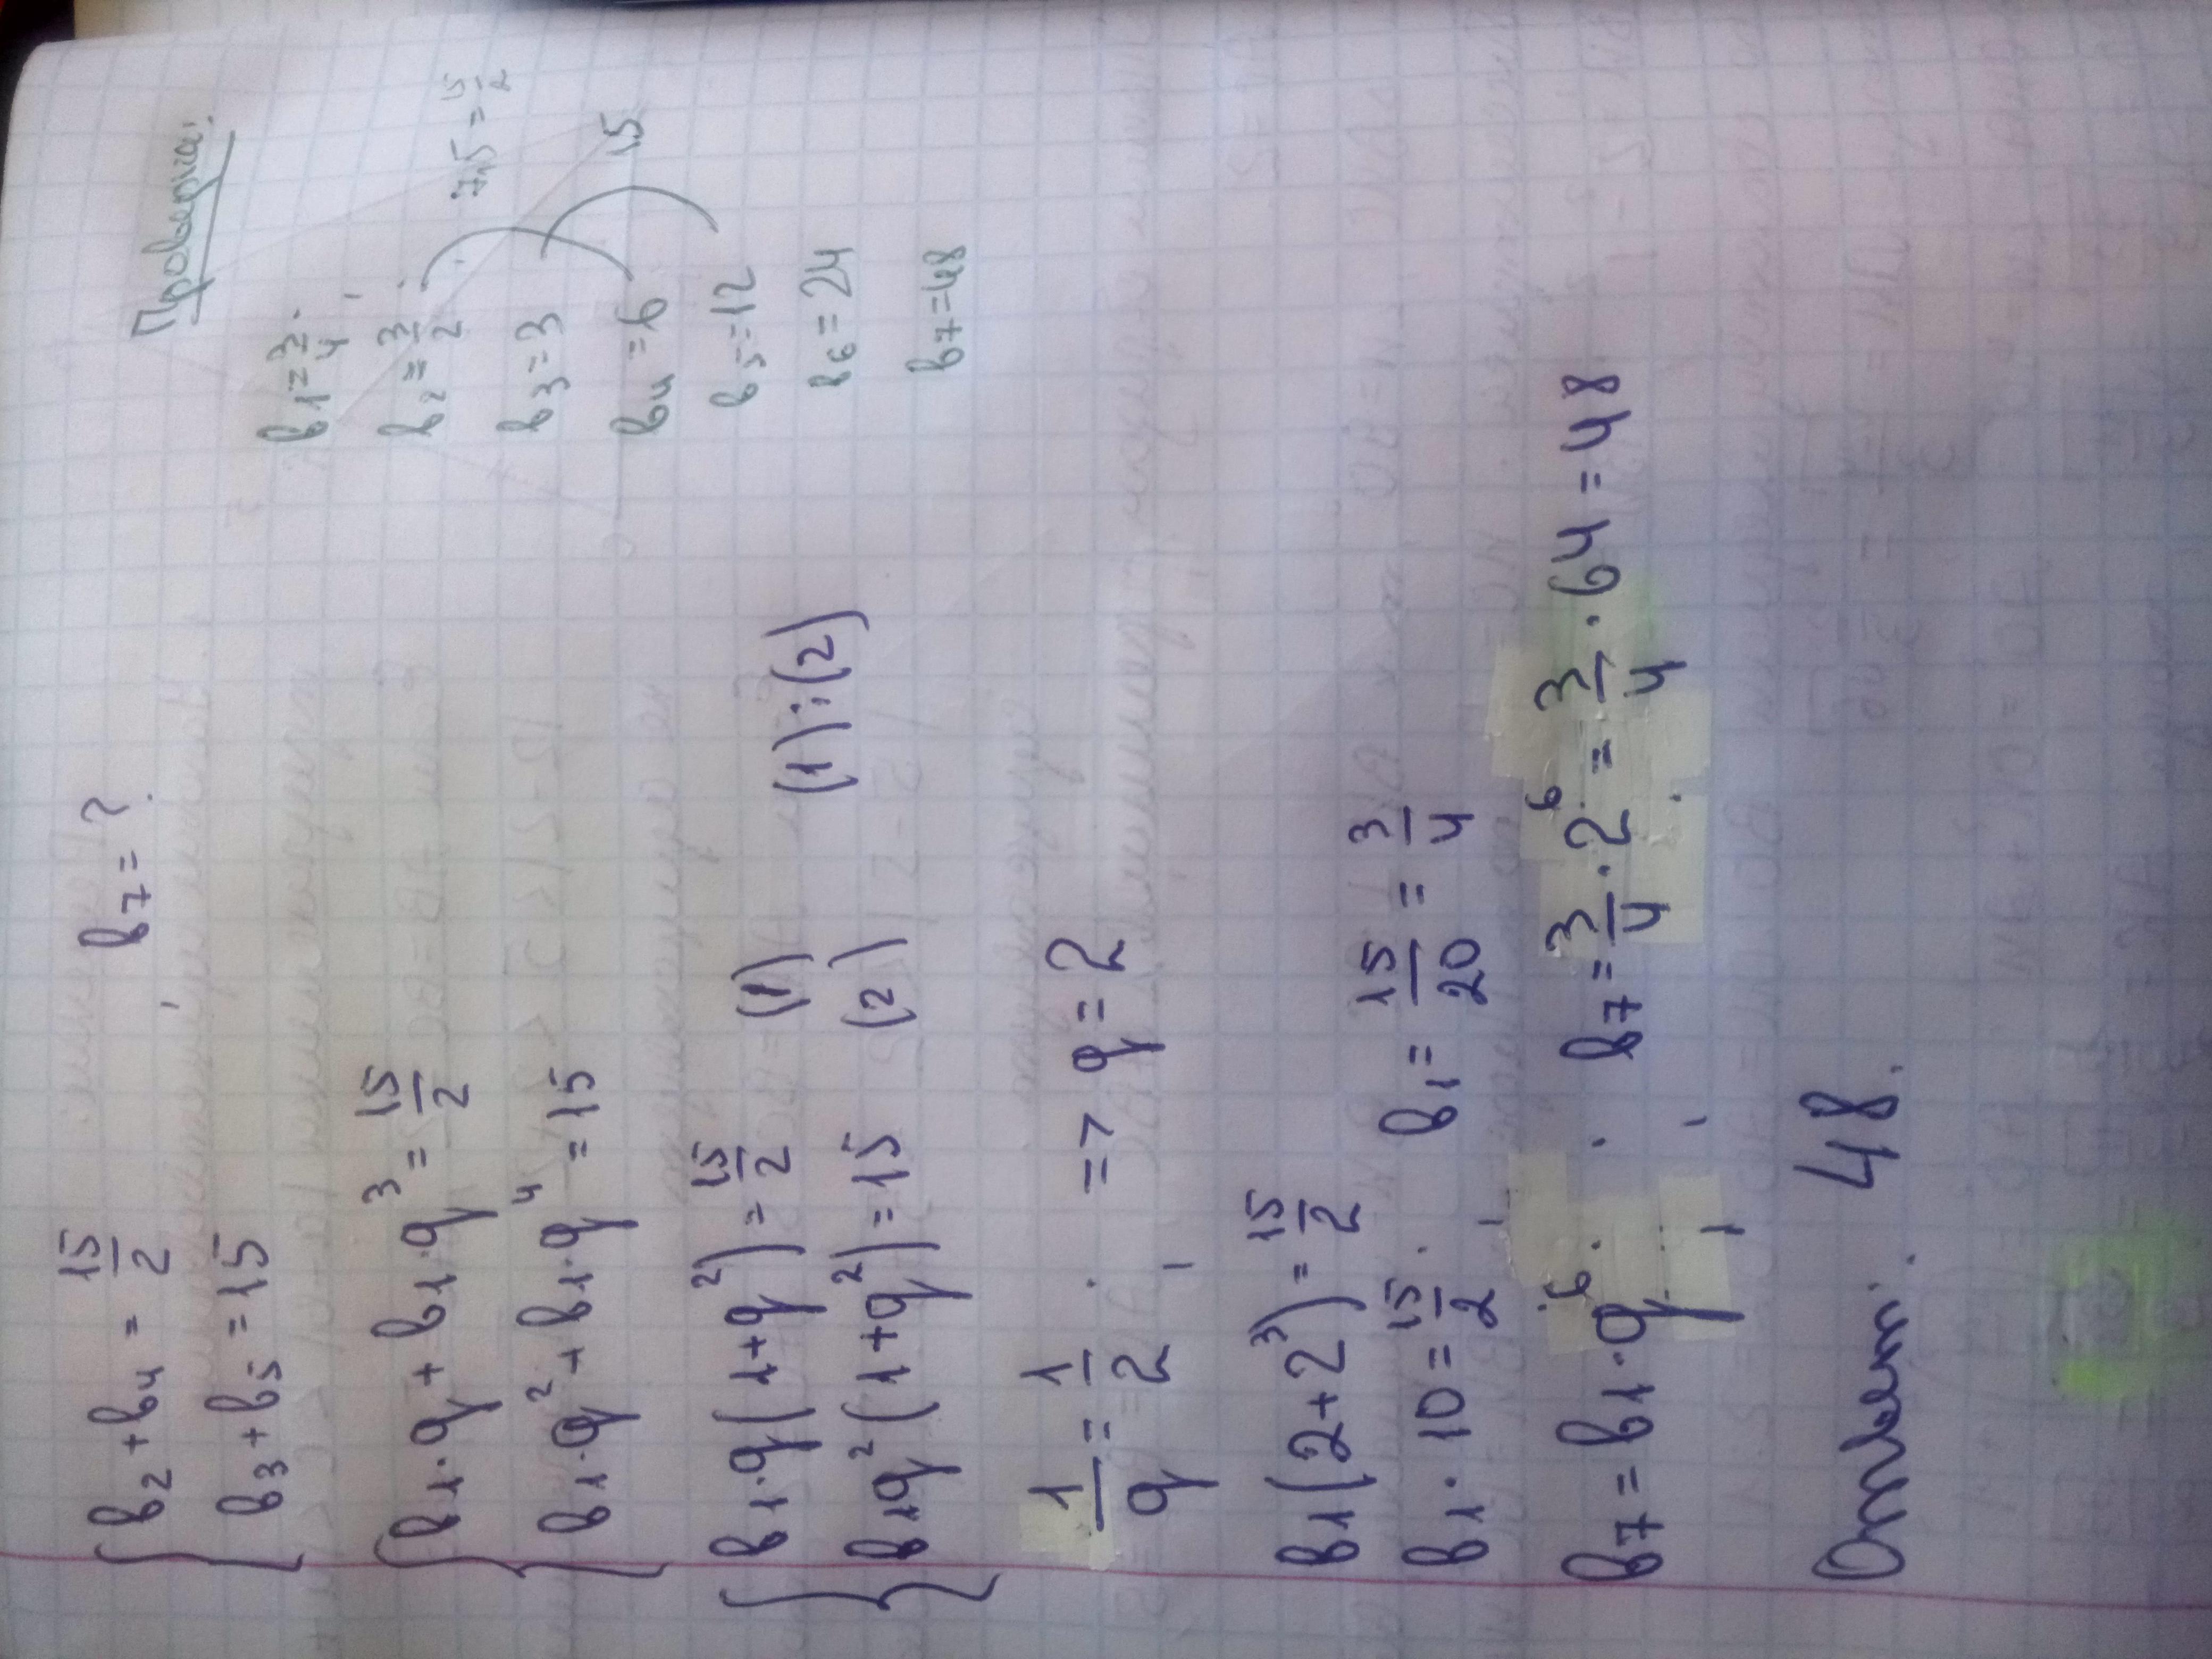 b₂ + b₄ = 15/2    b₇ = ?
b₃ + b₅ = 15
b₁·q + b₁·q³ = 15/2
b₁·q² + b₁·q⁴ = 15
b₁·q(1+q²) = 15/2   (1)
b₁q²(1+q²) = 15   (2)   (1):(2)
1/q = 1/2   =>   q = 2
b₁(2+2³) = 15/2
b₁·10 = 15/2   b₁ = 15/20 = 3/4
b₇ = b₁·q⁶   b₇ = 3/4·2⁶ = 3/4·64 = 48
Ответ: 48.
Проверка:
b₁ = 3/4
b₂ = 3/2   7,5 = 15/2
b₃ = 3   15
b₄ = 6
b₅ = 12
b₆ = 24
b₇ = 48